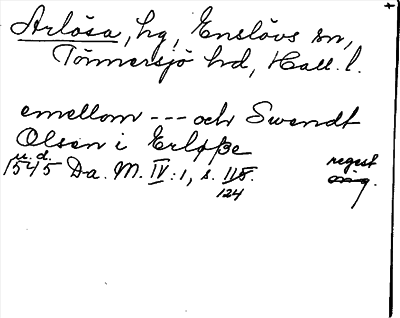 Arlösa, hg, Enslövs sn,
Tönnersjö hd, Hall. l.
emellom --- och Swendt
Olsen i Erløße
u. d.
1545 Da. M. IV:1, s. 118.
124
regest
orig.